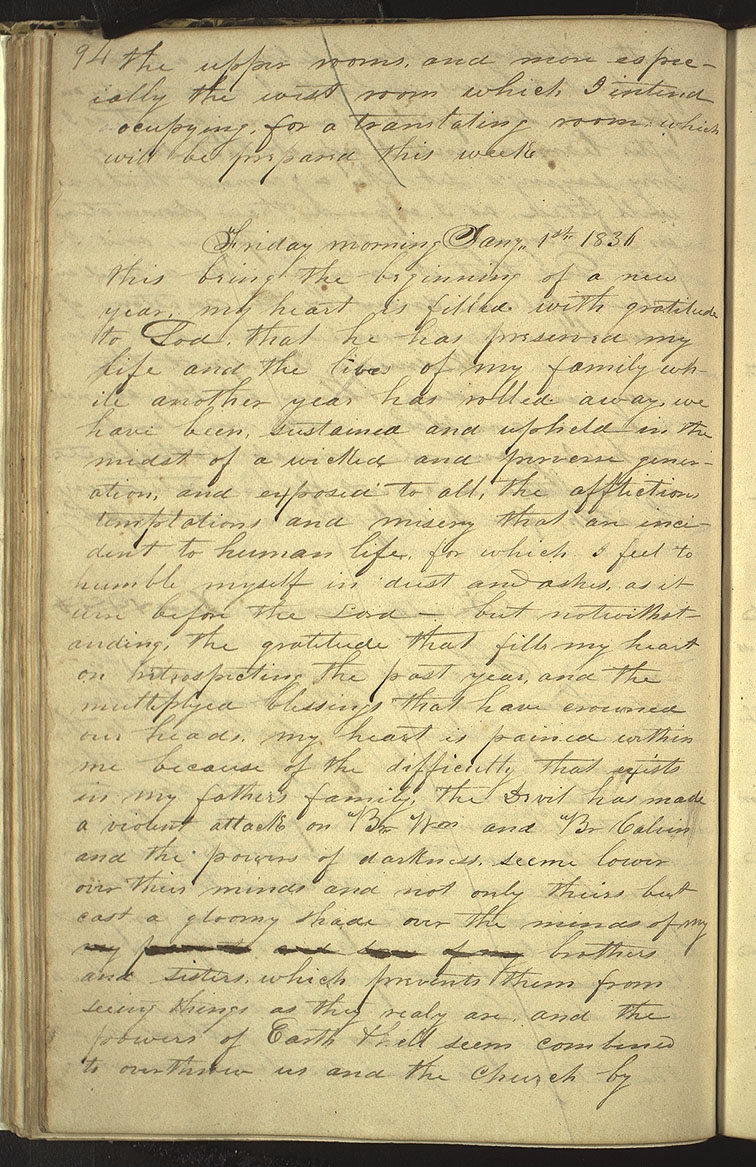 94 the upper rooms, and more espic-
ially the west room which I intend
ocupying, for a translating room, which
will be prepared this week
Friday morning Jany,, 1st 1836
this being the beginning of a new
year, my heart is filled with gratitude
to God, that he has preserved my
life and the lives of my family wh-
ile another year has rolled away, we
have been, sustained and upheld in the
midst of a wicked and perverse gener-
ation, and exposed to all, the afflictions
temptations and misery that are inci-
dent to human life, for which I feel to
humble myself in dust and ashes, as it
were before the Lord — but notwithst-
anding, the gratitude that fills my heart
on retrospecting the past year, and the
multiplyed blessings that have crowned
our heads, my heart is pained within
me because of the difficulty that exists
in my fathers family, the Devil has made
a violent attack on Br Wm and Br Calvin
and the powers of darkness, seeme lower
over their minds and not only theirs but
cast a gloomy shade over the minds of my
my and of my brothers
and sisters, which prevents them from
seeing things as they realy are, and the
powers of Earth & hell seem combined
to overthrow us and the church by